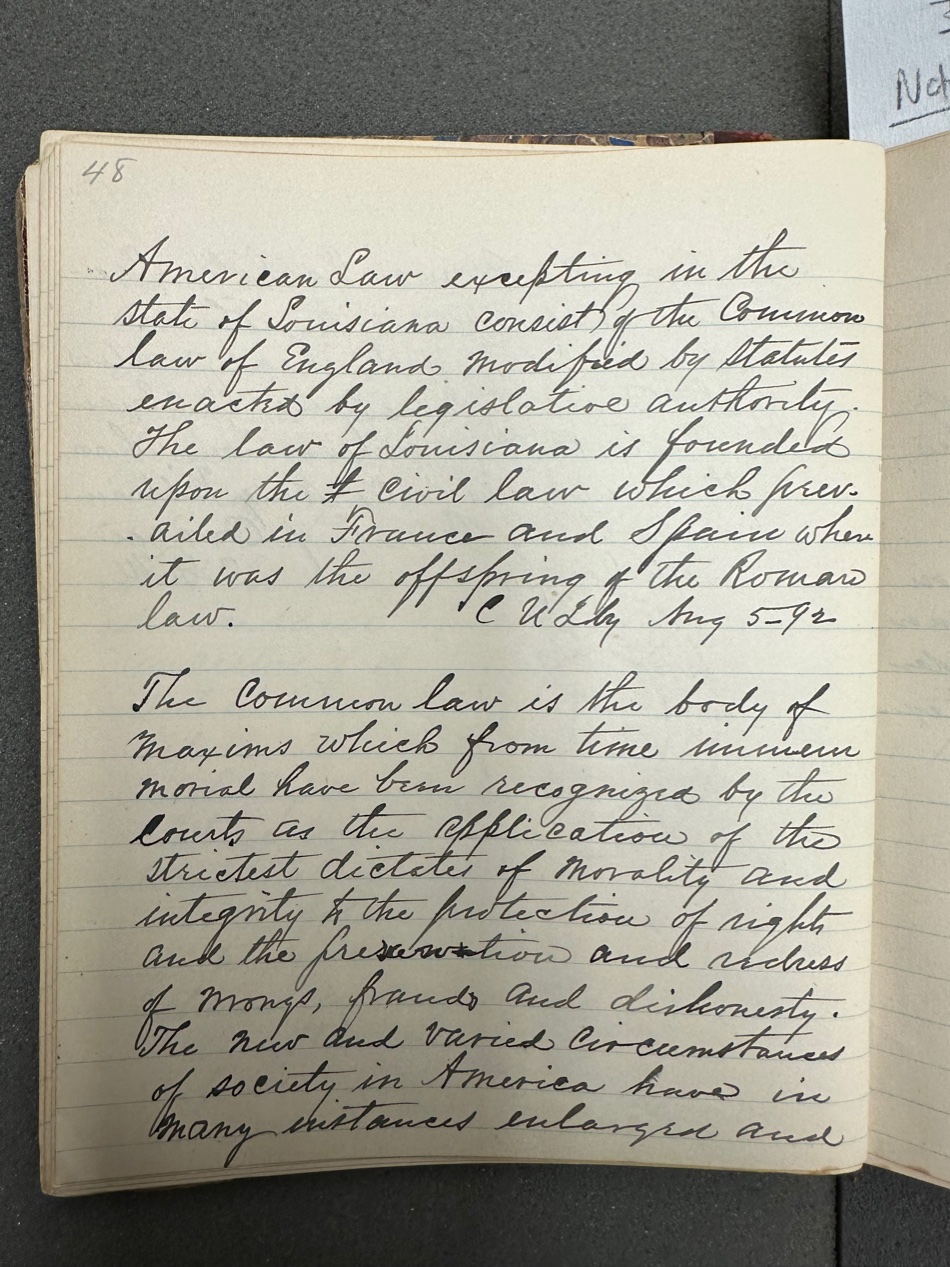 48
American Law excepting in the
state of Louisiana consist of the Common
law of England modified by statutes
enacted by legislative authority.
The law of Louisiana is founded
upon the civil law which prev-
-ailed in France and Spain where
it was the offspring of the Roman
law. Aug 5-92
The Common law is the body of
maxims which from time immem
morial have been recognized by the
courts as the application of the
strictest dictates of morality and
integrity to the protection of rights
and the and redress
of wrongs, frauds and dishonesty.
The new and varied circumstances
of society in America have in
many instances enlarged and